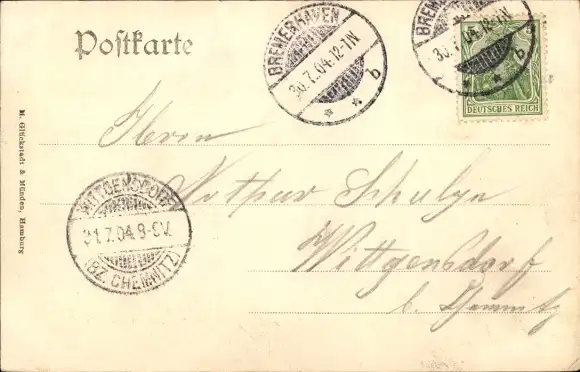 Postkarte
BREMERHAVEN
30.7.04.12-1N.
* b *
BREMERHAVEN
30.7.04.12-1N.
b
DEUTSCHES REICH
Herrn
Arthur Schulze
Wittgensdorf
b. Chemnitz
WITTGENSDORF
31.7.04.8-9V.
(BZ. CHEMNITZ)
M. Glückstadt & Münden, Hamburg